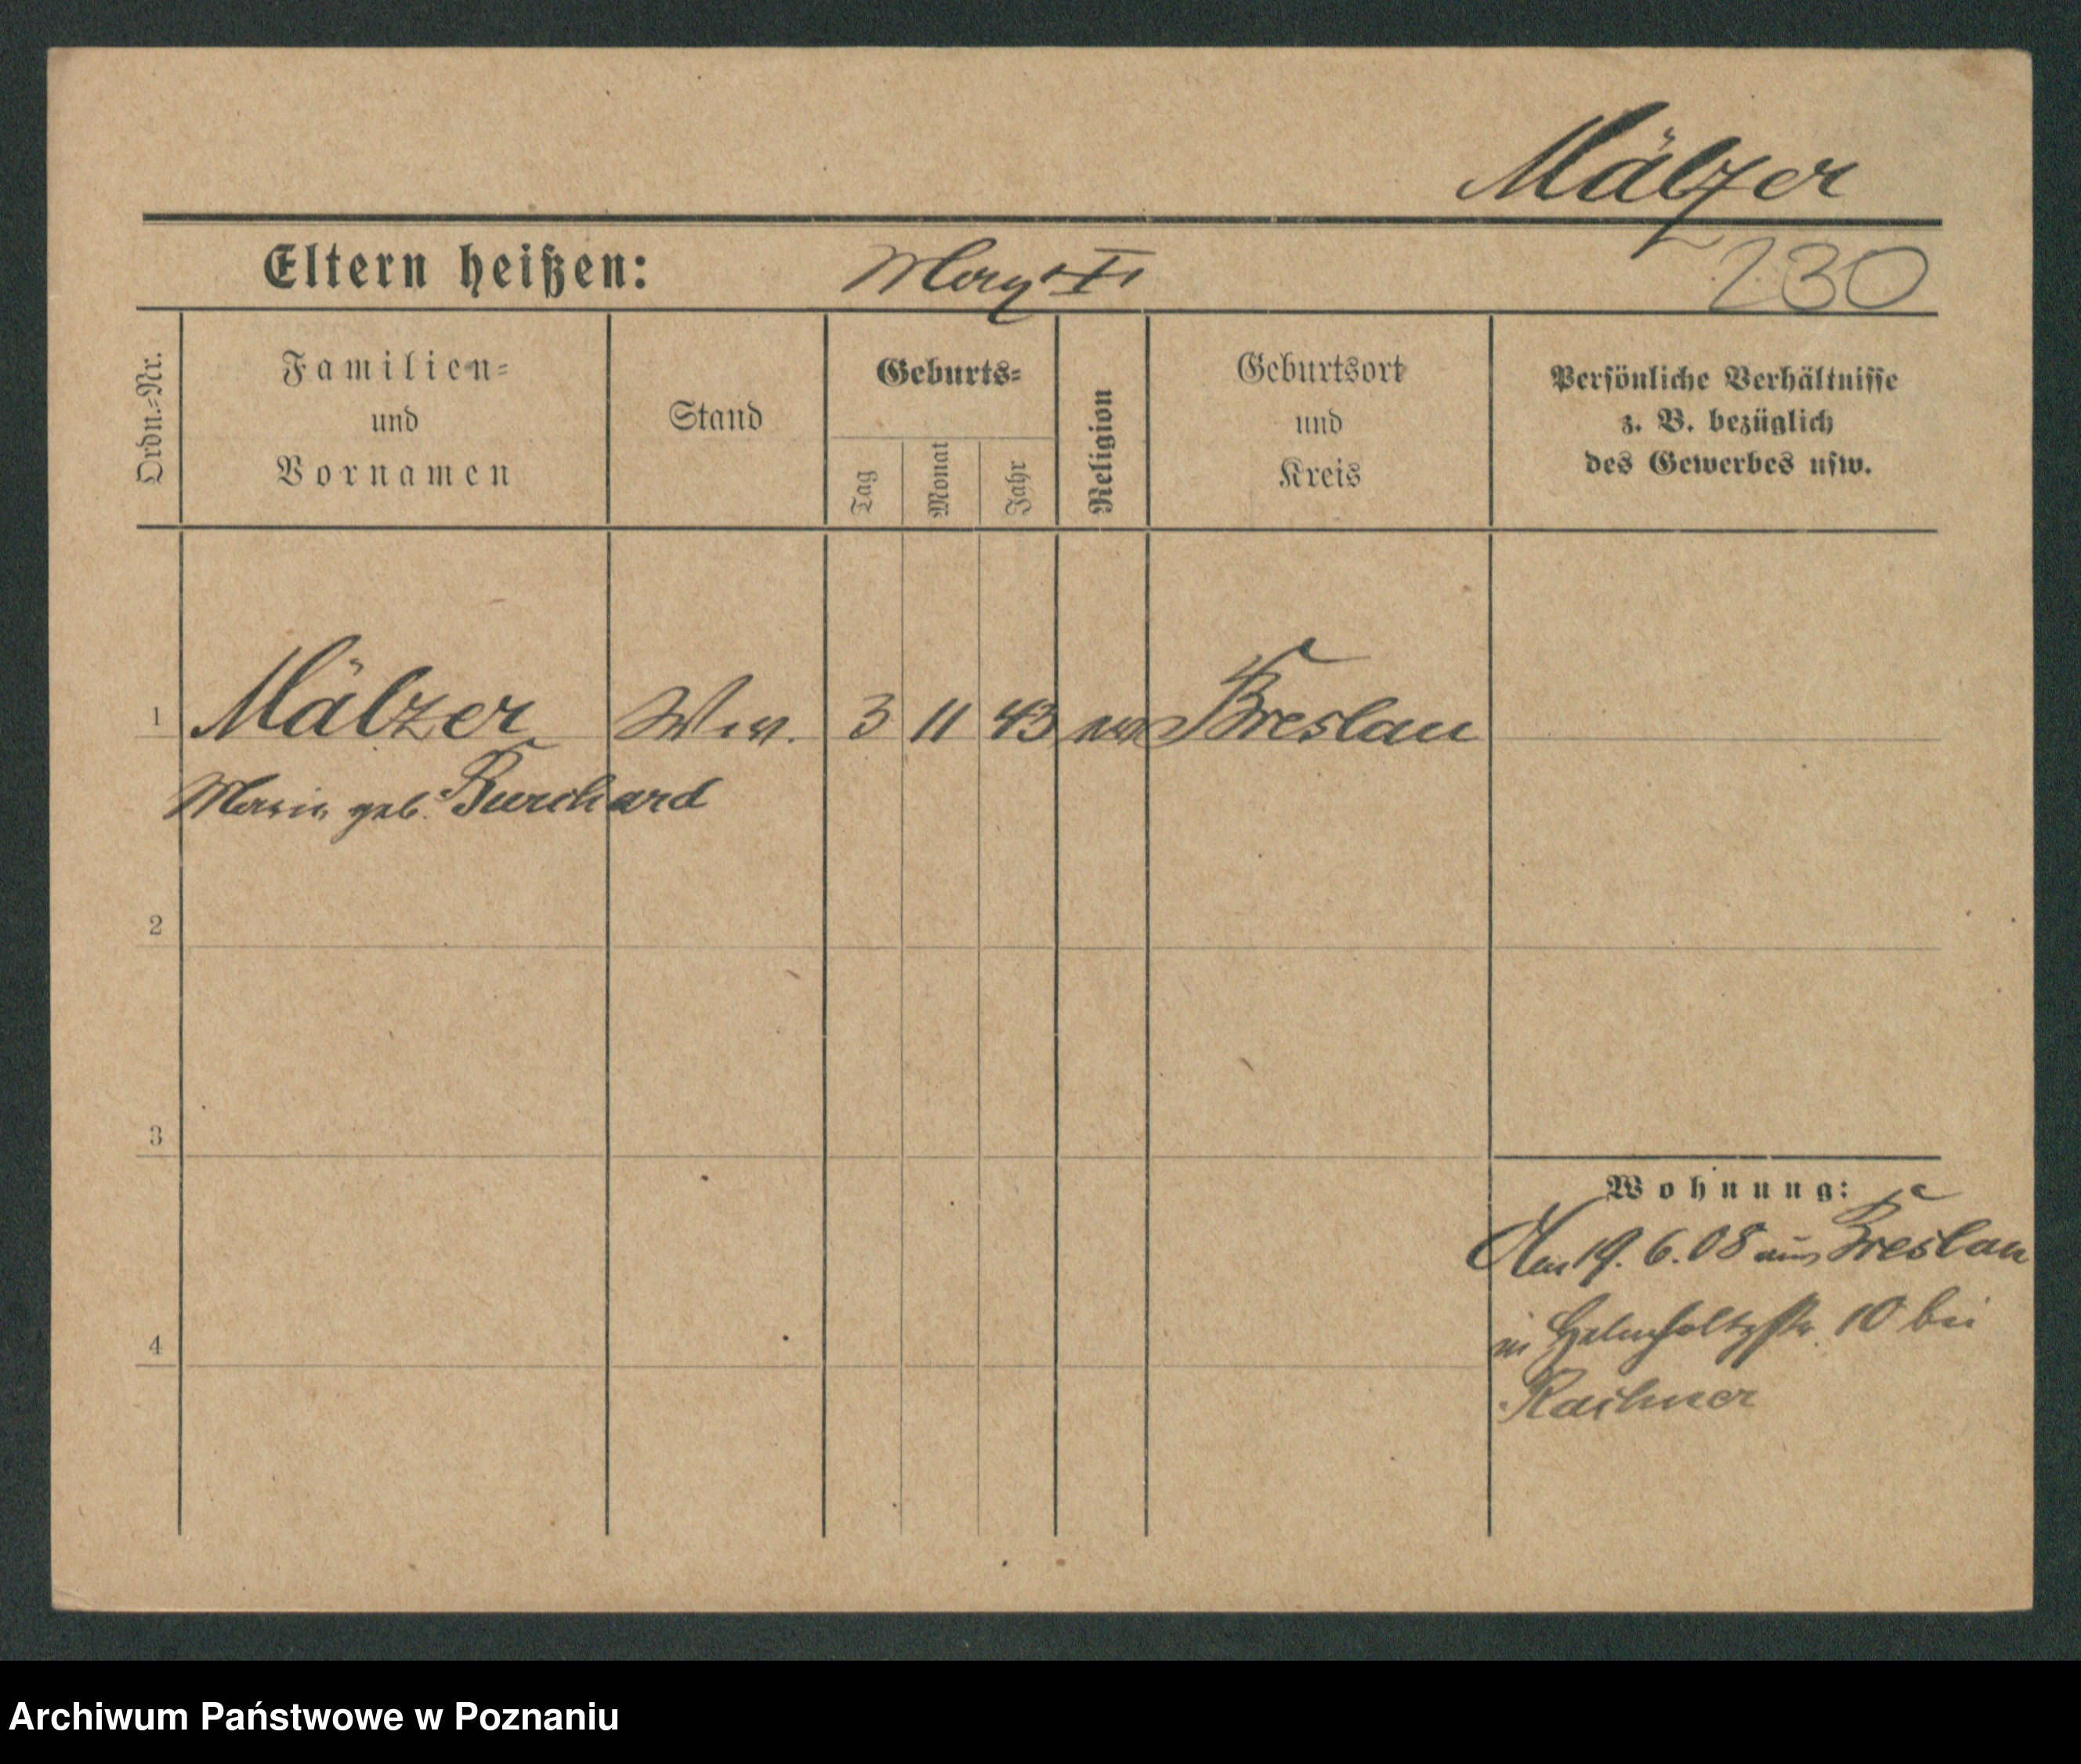 Mälzer
Eltern heißen:
230
Ordn.-Nr.
Familien-
und
Vornamen
Stand
Geburts-
Tag
Monat
Jahr
Religion
Geburtsort
und
Kreis
Persönliche Verhältnisse
z. B. bezüglich
des Gewerbes usw.
1 Mälzer Ww. 3 11 43 Breslau
Marie geb. Burchard
2
3
4
Wohnung:
Am 19. 6. 08 aus Breslau
in Helmholtzstr. 10 bei
Archiwum Państwowe w Poznaniu